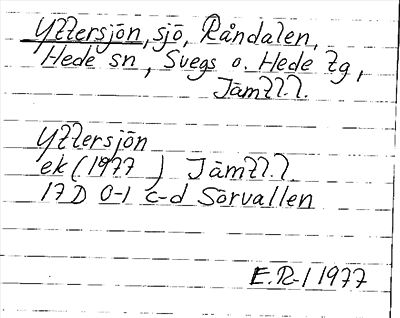 Yttersjön, sjö, Råndalen,
Hede sn, Svegs o. Hede tg,
Jämtl.l.
Yttersjön
ek (1977 ) Jämtl.l.
17 D 0-1 c-d Sörvallen
E.R-l 1977